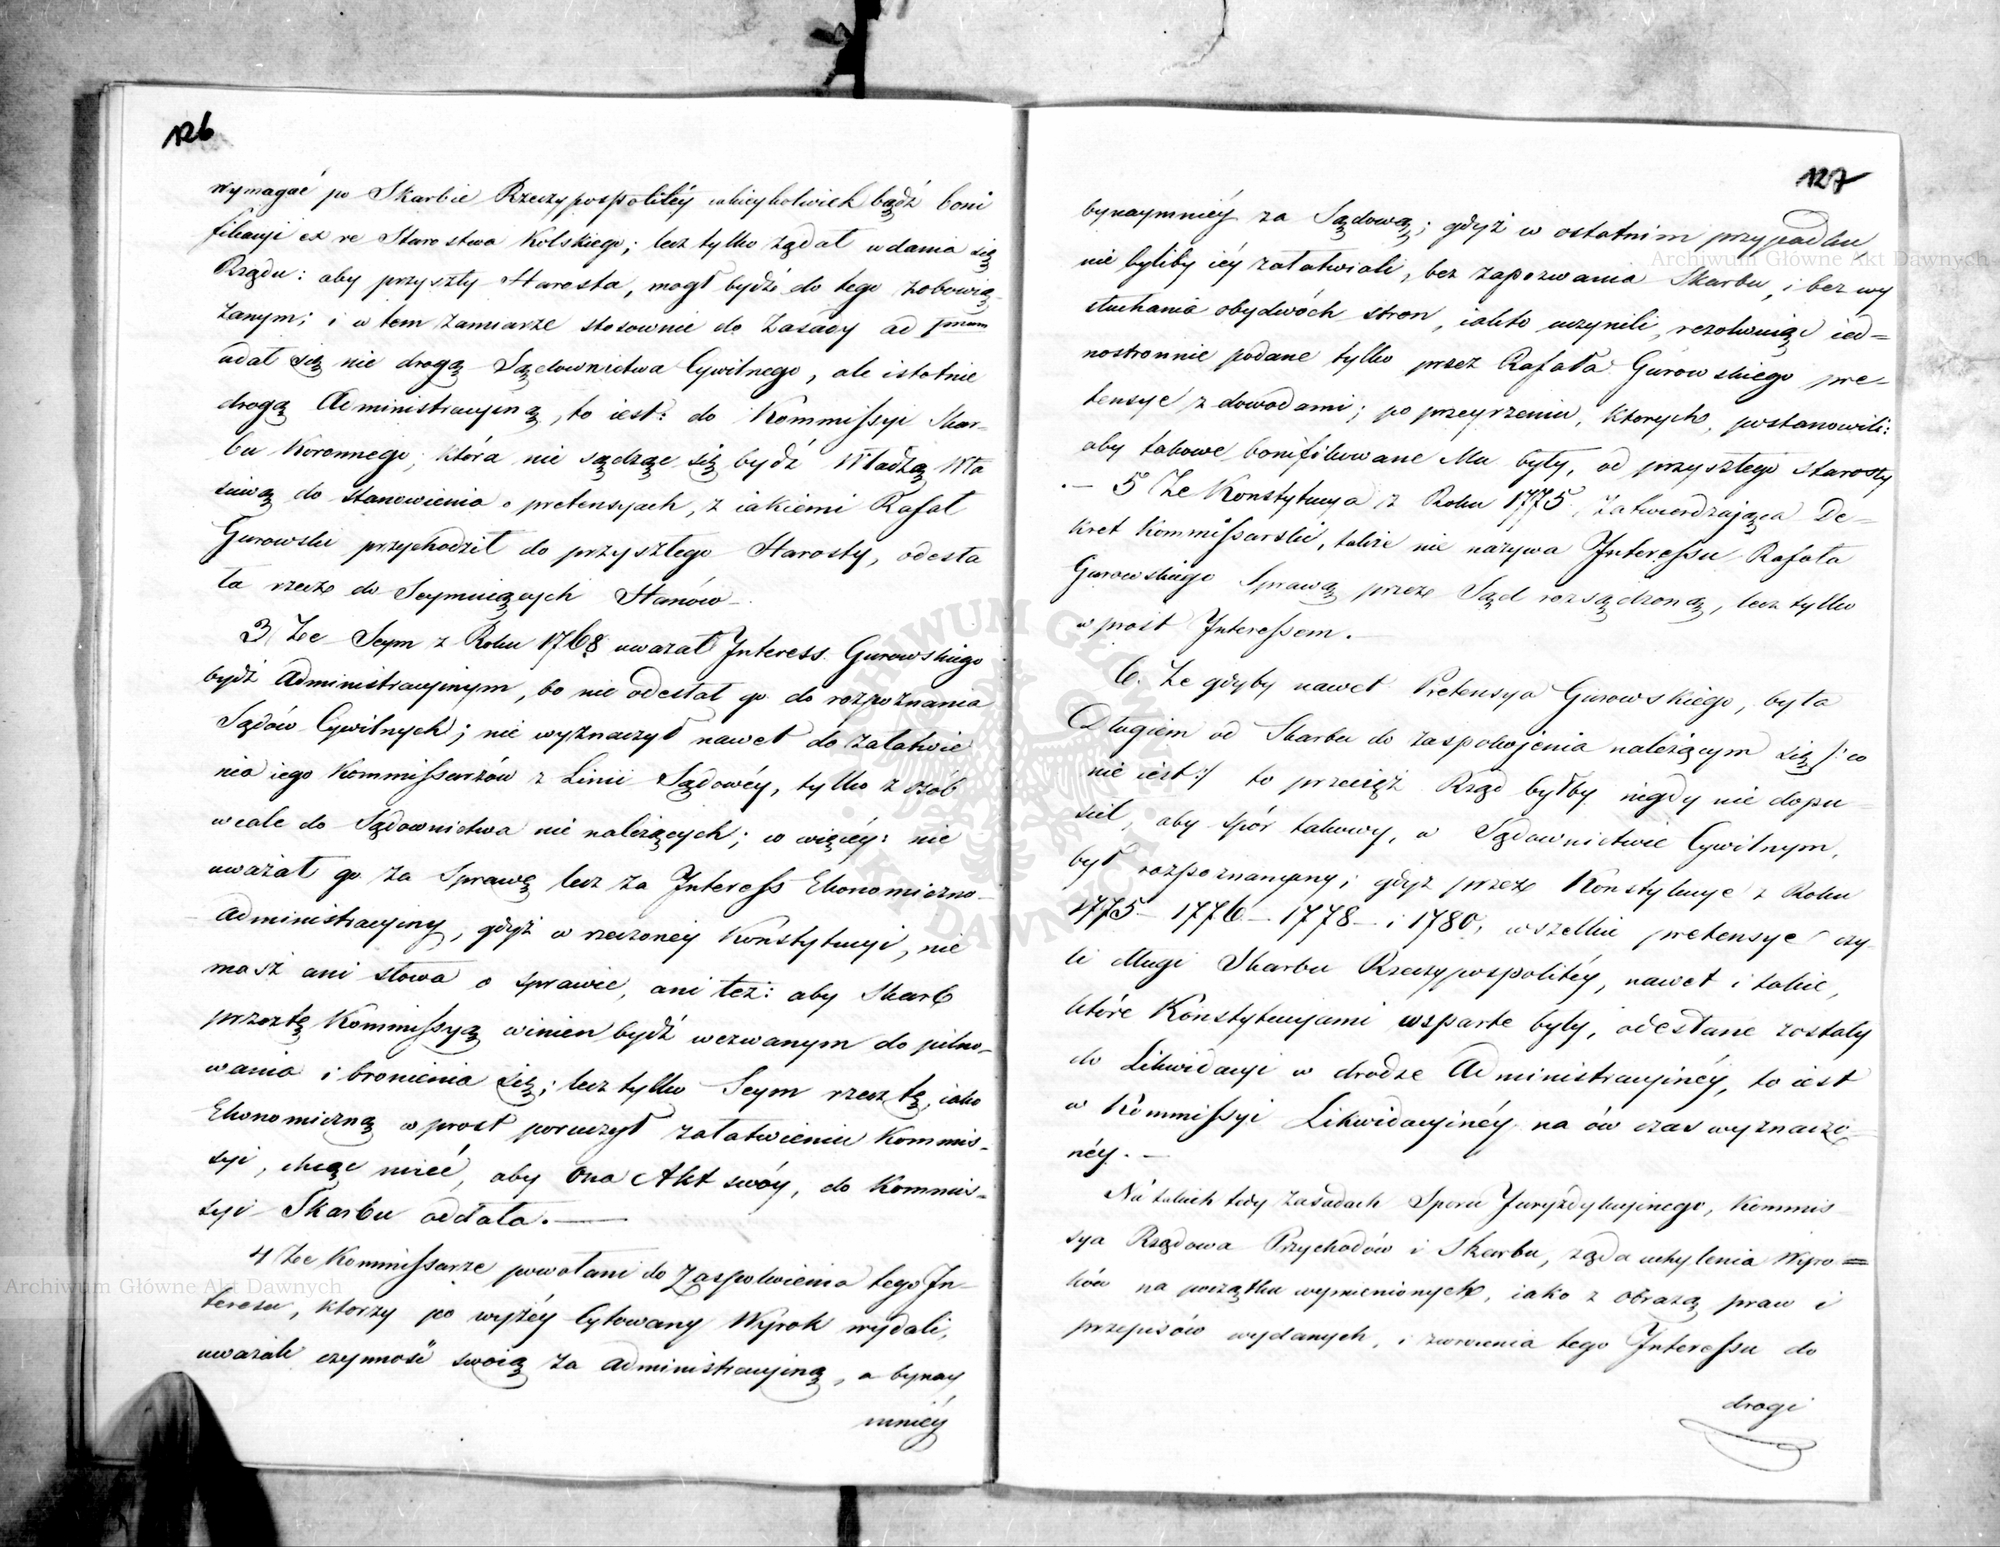 126
wymagać po Skarbie Rzeczypospolitéy iakieykolwiek bądź boni
fikacyi ex re Starostwa Kolskiego; lecz tylko żądał wdania się
Rządu: aby przyszły Starosta, mógł bydź do tego zobowią-
zanym; i w tem zamiarze stosownie do zasady ad 1mum
udał się nie drogą Sądownictwa Cywilnego, ale istotnie
drogą Administracyiną, to iest: do Kommissyi Skar-
bu Koronnego, która nie sądząc się bydź Władzą Wła
ściwą do stanowienia o pretensyach, z iakiemi Rafał
Gurowski przychodził do przyszłego Starosty, odesła
ła rzecz do Seymuiących Stanów.
3 Że Seym z Roku 1768 uważał Interess Gurowskiego
bydź Administracyinym, bo nie odesłał go do rozpoznania
Sądów Cywilnych; nie wyznaczył nawet do załatwie
nia iego Kommissarzów z Linii Sądowéy, tylko z osób
wcale do Sądownictwa nie należących; co więcéy: nie
uważał go za Sprawę lecz za Interess Ekonomiczno-
Administracyiny, gdyż w rzeczonéy Konstytucyi, nie
masz ani słowa o sprawie, ani też: aby Skarb
przez tę Kommissyą winien bydź wezwanym do pilno-
wania i bronienia się; lecz tylko Seym rzecz tę, iako
Ekonomiczną w prost poruczył załatwieniu Kommis-
syi, chcąc mieć, aby Ona Akt swóy, do Kommis-
syi Skarbu oddała.
4 Że Kommissarze powołani do zaspokoienia tego In-
teresu, którzy po wyżéy Cytowany Wyrok wydali,
uważali czynność swoią za administracyiną, a bynay
mniéy
127
bynaymniéy za Sądową; gdyż w ostatnim przypadku
nie byliby iéy załatwiali, bez zapozwania Skarbu, i bez wy
słuchania obydwóch stron, iakto uczynili, rezolwuiąc ied-
nostronnie podane tylko przez Rafała Gurowskiego pre-
tensye z dowodami; po przeyrzeniu, których, postanowili:
aby takowe bonifikowane Mu były, od przyszłego Starosty
5 Że Konstytucya z Roku 1775, zatwierdzaiąca De-
kret Kommissarski, także nie nazywa Interessu Rafała
Gurowskiego Sprawą przez Sąd rozsądzoną, lecz tylko
w prost Interessem.
6. Że gdyby nawet Pretensya Gurowskiego, była
Długiem od Skarbu do zaspokojenia należącym się /:co
nie iest:/ to przecięż Rząd byłby nigdy nie dopu
ścił, aby spór takowy, w Sądownictwie Cywilnym,
był rozpoznawany; gdyż przez Konstytucye z Roku
1775 – 1776 – 1778 – i 1780, wszelkie pretensye czy-
li długi Skarbu Rzeczypospolitéy, nawet i takie,
które Konstytucyami wsparte były, odesłane zostały
do Likwidacyi w drodze Administracyinéy, to iest
w Kommissyi Likwidacyinéy na ów czas wyznaczo-
néy.
Na takich tedy zasadach Sporu Juryzdykcyinego, Kommis
sya Rządowa Przychodów i Skarbu, żąda uchylenia Wyro=
ków na początku wymienionych, iako z obrazą praw i
przepisów wydanych, i zwrócenia tego Interessu do
drogi
Archiwum Główne Akt Dawnych
Archiwum Główne Akt Dawnych
ARCHIWUM GŁÓWNE AKT DAWNYCH